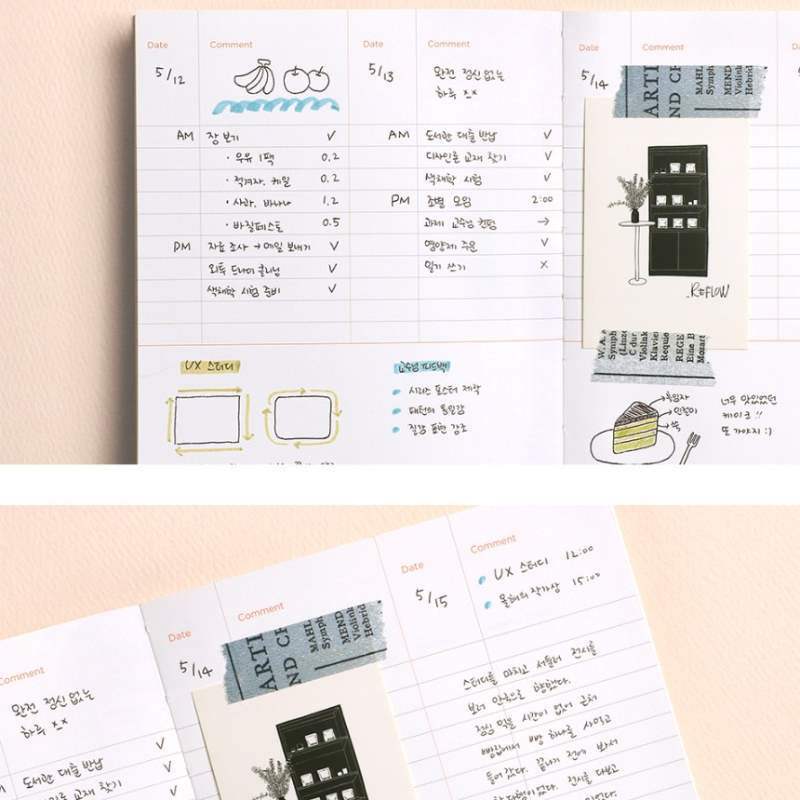 Date Comment Date Comment Date Comment
5/12
5/13 완전 정신 없는
하루 xx
5/14
AM 장 보기 ✓
· 우유 1팩 0.2
· 적겨자, 케일 0.2
· 사과, 바나나 1.2
· 바질페스토 0.5
PM 자료 조사 → 메일 보내기 ✓
외투 드라이 클리닝 ✓
색채학 시험 준비 ✓
AM 도서관 대출 반납 ✓
디자인론 교재 찾기 ✓
색채학 시험 ✓
PM 조별 모임 2:00
과제 교수님 컨펌 →
영양제 주문 ✓
일기 쓰기 x
ARTI
ND CH
MAHL
Symph
MEND
Violink
Hebrid
REFLOW
W. A.
Symph
(Linze
C dur
Violink
Klavie
Requie
REGE
Eine B
Mozart
UX 스터디
교수님 피드백
시리즈 포스터 제작
패턴의 통일감
질감 표현 강조
흑임자
인절미
쑥
너무 맛있었던
케이크 !!
또 가야지 :)
Comment
완전 정신 없는
하루 xx
도서관 대출 반납 ✓
교재 찾기 ✓
Date Comment
5/14
ARTI
ND CH
MAHL
Symph
MEND
Violink
Hebrid
Date Comment
5/15
UX 스터디 12:00
올해의 작가상 15:00
스터디를 마치고 서둘러 전시를
보러 안국으로 향했다.
점심 먹을 시간이 없어 근처
빵집에서 빵 하나를 사먹고
들어갔다. 끝나기 전에 봐서
다행이었다. 전시를 다보고